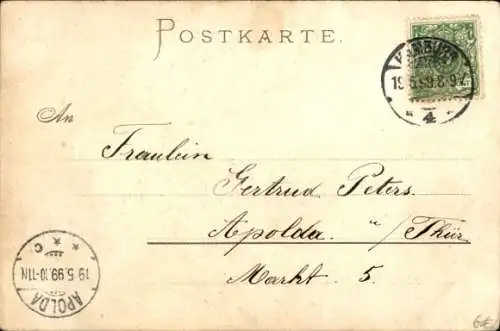 POSTKARTE.
An
Fraulein
Gertrud Peters.
Apolda. i/Thür.
Markt 5.
19.5.99.
* 4 *
APOLDA
19.5.99.10-11N.
* * C